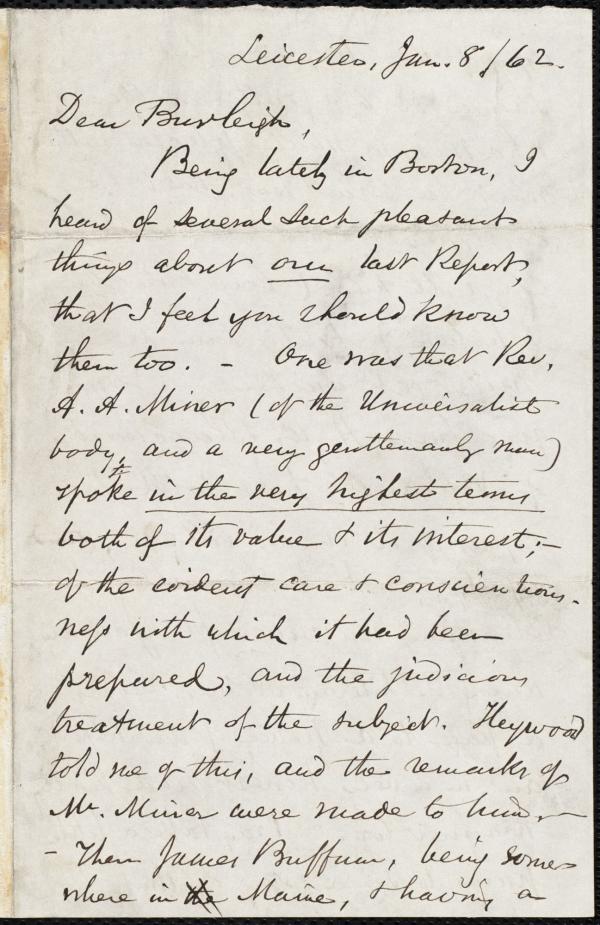 Leicester, Jan. 8/62.
Dear Burleigh,
Being lately in Boston, I
heard of several such pleasant
things about our last Report,
that I feel you should know
them too. – One was that Rev.
A. A. Miner (of the Universalist
body, and a very gentlemanly man)
spoke in the very highest terms
both of its value & its interest; –
of the evident care & conscientious-
ness with which it had been
prepared, and the judicious
treatment of the subject. Heywood
told me of this, and the remarks of
Mr. Miner were made to him. –
– Then James Buffum, being some-
where in the Maine, & having a